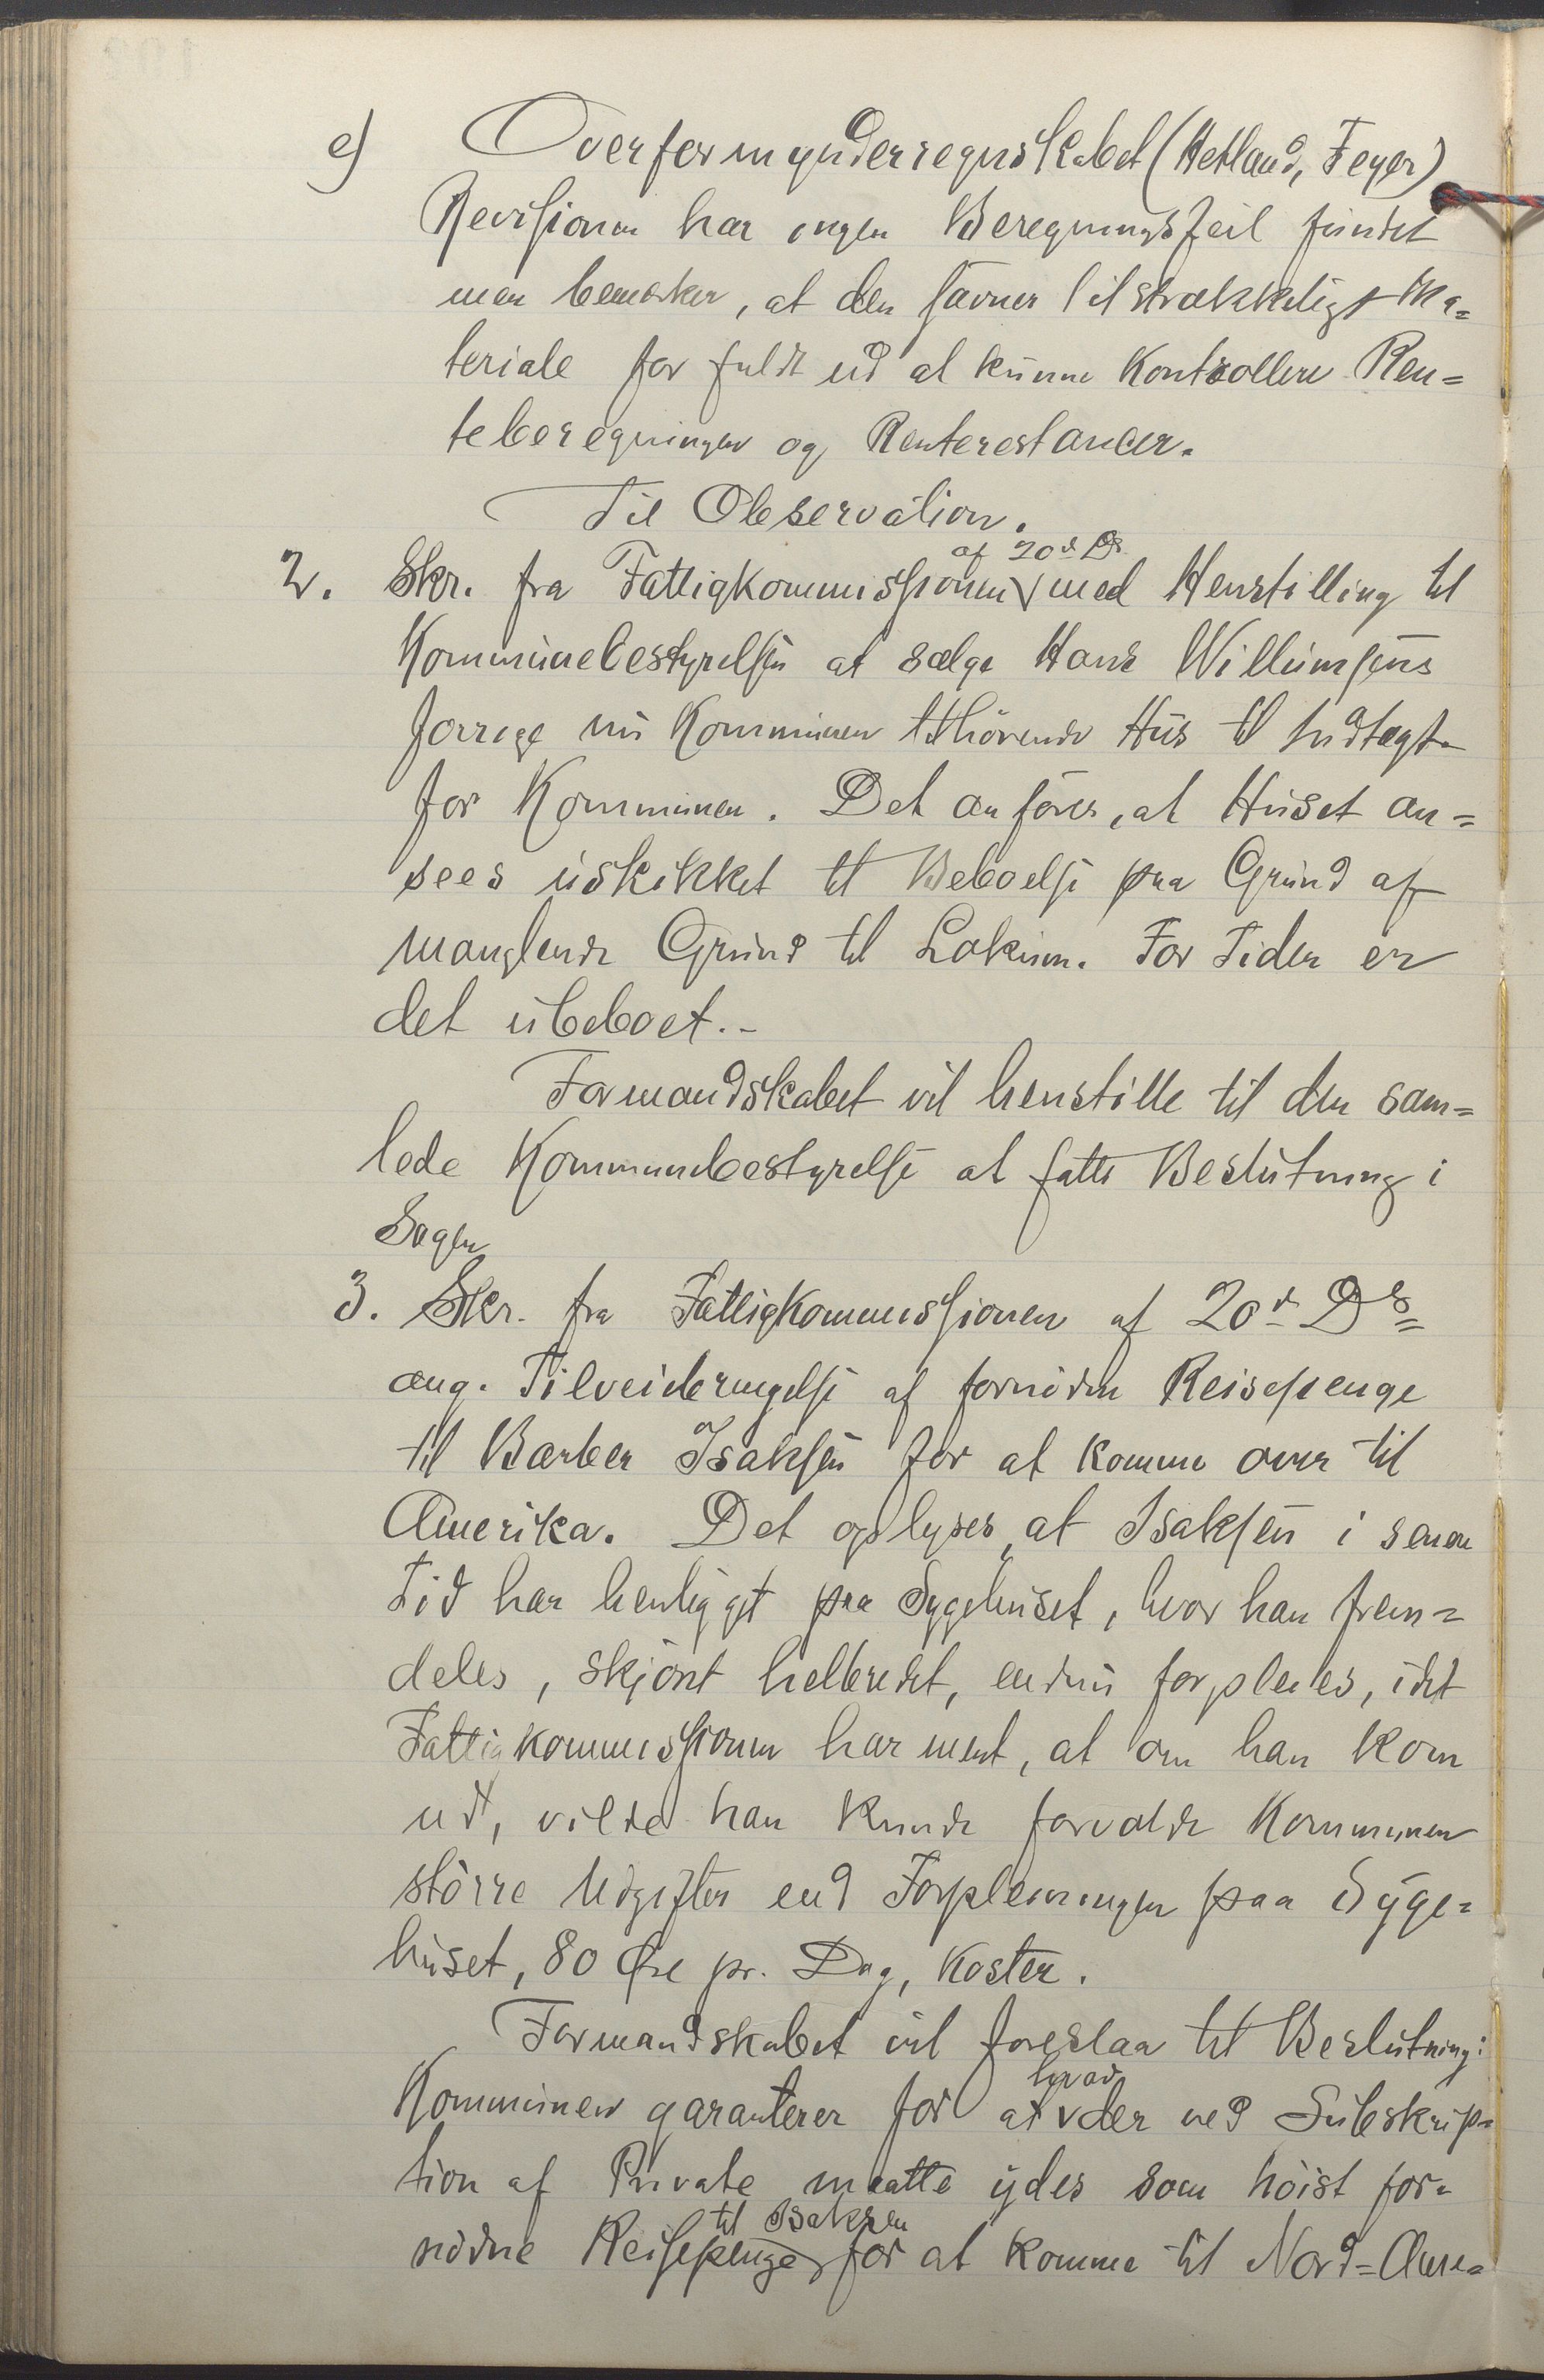 e) Overformynderregnskabet (Hetland, Feyer)
Revisionen har ingen Beregningsfeil fundet
men bemærker, at den savner tilstrækkeligt Ma=
teriale for fuldt ud at kunne kontrollere Ren=
teberegningen og Renterestancer.
Til Observation.
af 20de Ds
2. Skr. fra Fattigkommissionen med Henstilling til
Kommunebestyrelsen at sælge Hans Willumsens
forrige nu Kommunen tilhørende Hus til Indtægt
for Kommunen. Det anføres, at Huset an=
sees uskikket til Beboelse paa Grund af
manglende Grund til Lokum. For Tiden er
det ubeboet.-
Formandskabet vil henstille til den sam=
lede Kommunebestyrelse at fatte Beslutning i
Sagen
3. Skr. fra Fattigkommissionen af 20de Ds
ang. Tilveiebringelse af fornöden Reisepenge
til Barber Isaksen for at komme over til
Amerika. Det oplyses, at Isaksen i senere
Tid har henligget paa Sygehuset, hvor han frem=
deles, skjönt helbredet, endnu forpleies, idet
Fattigkommissionen har ment, at om han kom
ud, vilde han kunde forvolde Kommunen
större Udgifter end Forpleiningen paa Syge=
huset, 80 Øre pr. Dag, koster.
Formandskabet vil foreslaa til Beslutning:
hvad
Kommunen garanterer for at der ved Subskrip=
tion af Private maatte ydes som höist for=
til Isaksen
nödne Reisepenge for at komme til Nord=Ame=